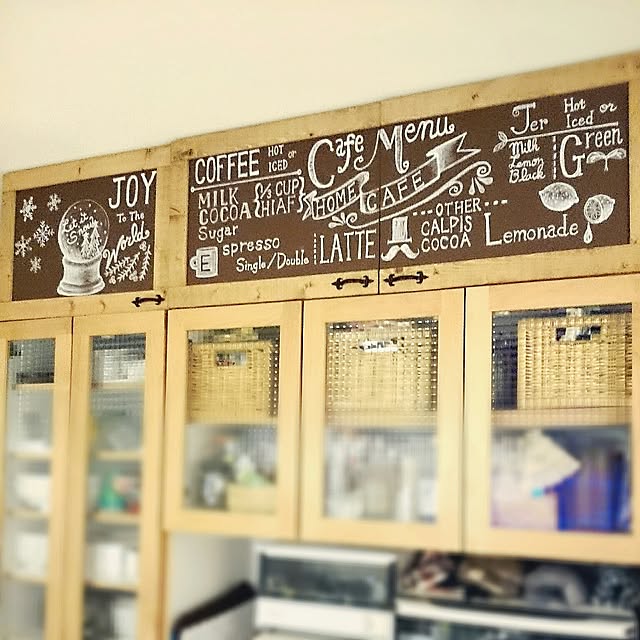 JOY
To The
World
Let it
Snow
COFFEE HOT or
ICED
MILK
COCOA
Sugar
Espresso
Single/Double
Cafe Menu
HOME CAFE
LATTE
OTHER
CALPIS
COCOA
Lemonade
Ter Hot or
Iced
Milk
Lemon
Black
Green